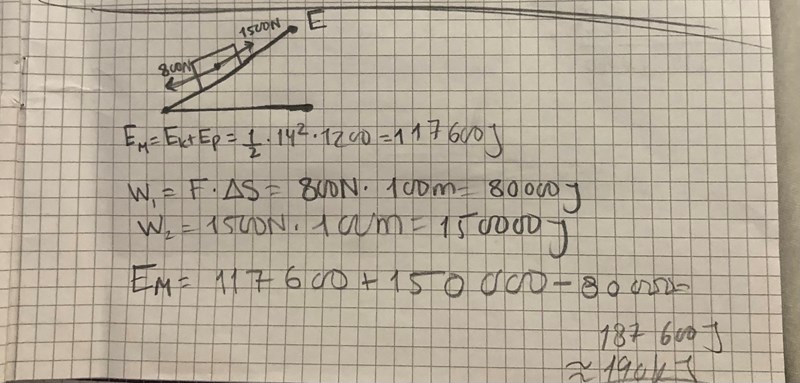 1500N E
800N
E_M = E_k + E_p = 1/2 · 14² · 1200 = 117 600 J
W₁ = F · ΔS = 800N · 100m = 80000 J
W₂ = 1500N · 100m = 150000 J
E_M = 117 600 + 150 000 - 80000=
187 600 J
≈ 190kJ